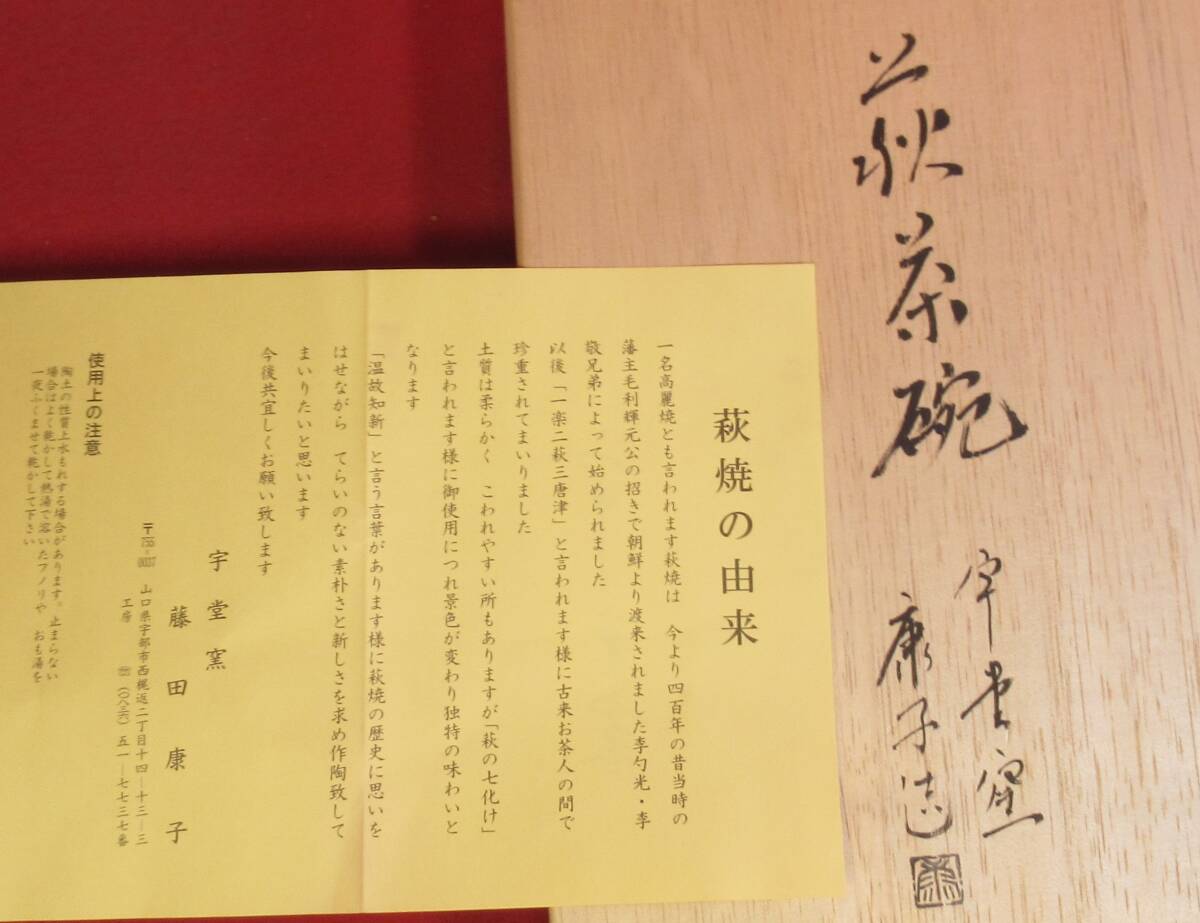 萩茶碗
宇堂窯
康子造
萩焼の由来
一名高麗焼とも言われます萩焼は 今より四百年の昔当時の
藩主毛利輝元公の招きで朝鮮より渡来されました李勺光・李
敬兄弟によって始められました
以後「一楽二萩三唐津」と言われます様に古来お茶人の間で
珍重されてまいりました
土質は柔らかく こわれやすい所もありますが「萩の七化け」
と言われます様に御使用につれ景色が変わり独特の味わいと
なります
「温故知新」と言う言葉があります様に萩焼の歴史に思いを
はせながら てらいのない素朴さと新しさを求め作陶致して
まいりたいと思います
今後共宜しくお願い致します
宇堂窯
藤田康子
〒755-0037 山口県宇部市西梶返二丁目十四―十三―三
工房 ☎(〇八三六)五一―七七三七番
使用上の注意
陶土の性質上水もれする場合があります。止まらない
場合はよく乾かして熱湯で溶いたフノリや おも湯を
一夜ふくませて乾かして下さい